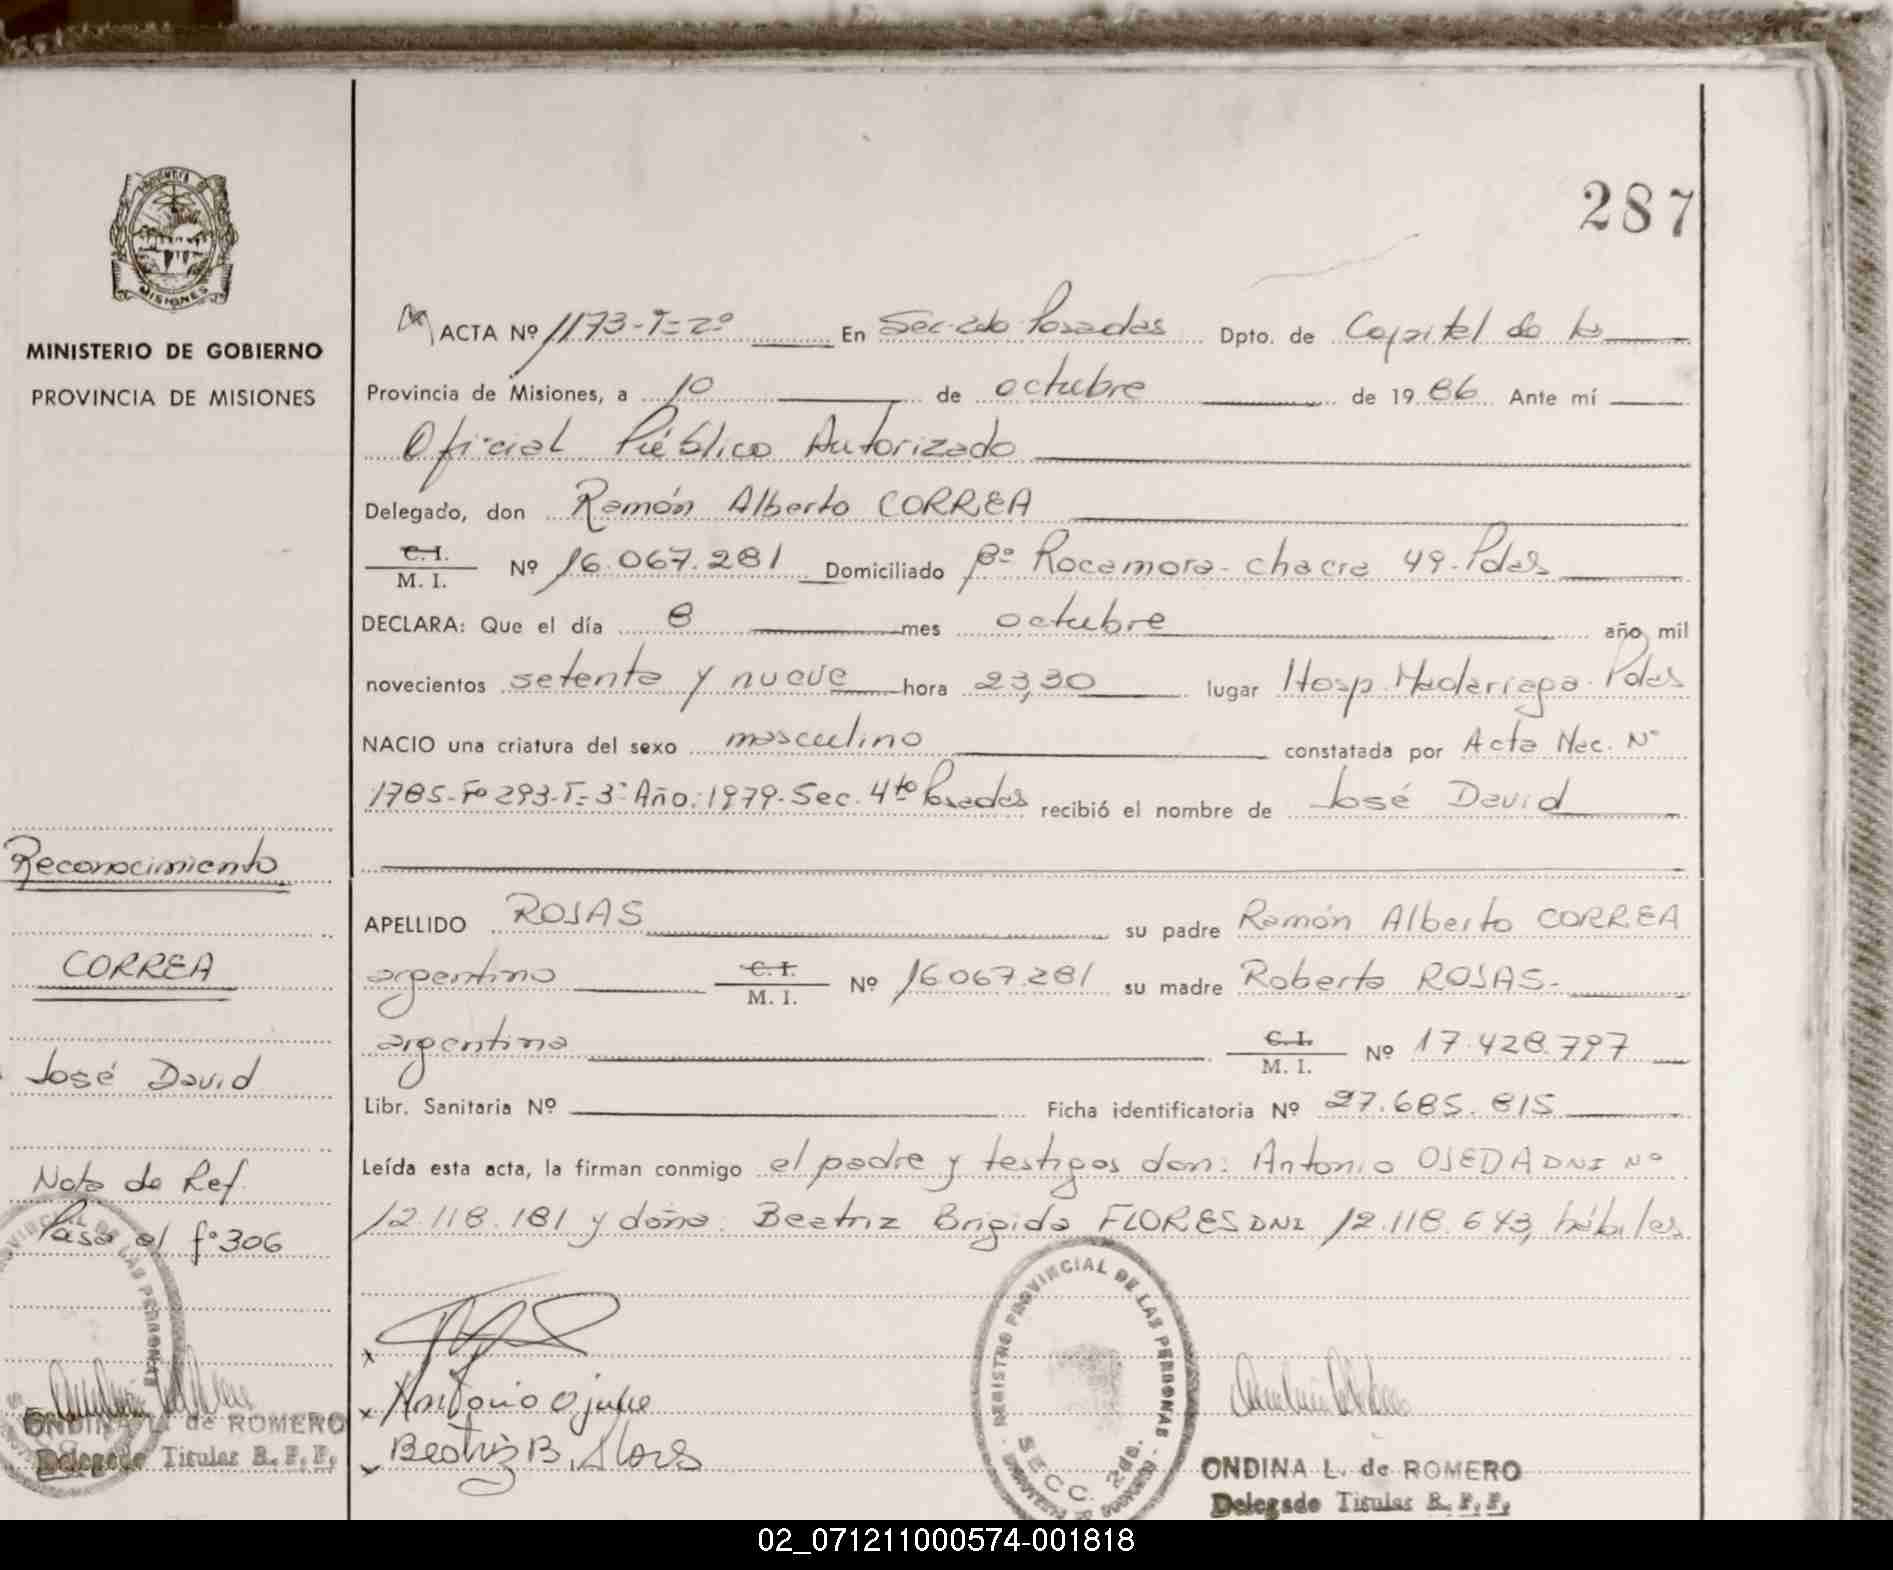 287
PROVINCIA DE
MISIONES
MINISTERIO DE GOBIERNO
PROVINCIA DE MISIONES
ACTA Nº 1173-T=2º En Sec. 2da Posadas Dpto. de Capital de la
Provincia de Misiones, a 10 de octubre de 1986 Ante mí
Oficial Público Autorizado
Delegado, don Ramón Alberto CORREA
C.I.
M. I. Nº 16.067.281 Domiciliado Bº Rocamora - chacra 49 - Pdas
DECLARA: Que el día 8 mes octubre año mil
novecientos setenta y nueve hora 23,30 lugar Hosp. Madariaga - Pdas
NACIO una criatura del sexo masculino constatada por Acta Nac. Nº
1785-Fº 293-T=3º Año: 1979-Sec. 4ta Posadas recibió el nombre de José David
APELLIDO ROJAS su padre Ramón Alberto CORREA
argentino C.I. M. I. Nº 16.067.281 su madre Roberta ROJAS-
argentina C.I. M. I. Nº 17.428.797
Libr. Sanitaria Nº Ficha identificatoria Nº 27.685.815
Leída esta acta, la firman conmigo el padre y testigos don: Antonio OJEDA DNI Nº
12.118.181 y doña: Beatriz Brigida FLORES DNI 12.118.643, hábiles
Reconocimiento
CORREA
José David
Nota de Ref.
Pasa al fº 306
ONDINA L. de ROMERO
Delegado Titular R. P. P.
x
x Antonio Ojeda
x Beatriz B. Flores
REGISTRO PROVINCIAL DE LAS PERSONAS
SECC. 2da.
ONDINA L. de ROMERO
Delegado Titular R. P. P.
02_071211000574-001818